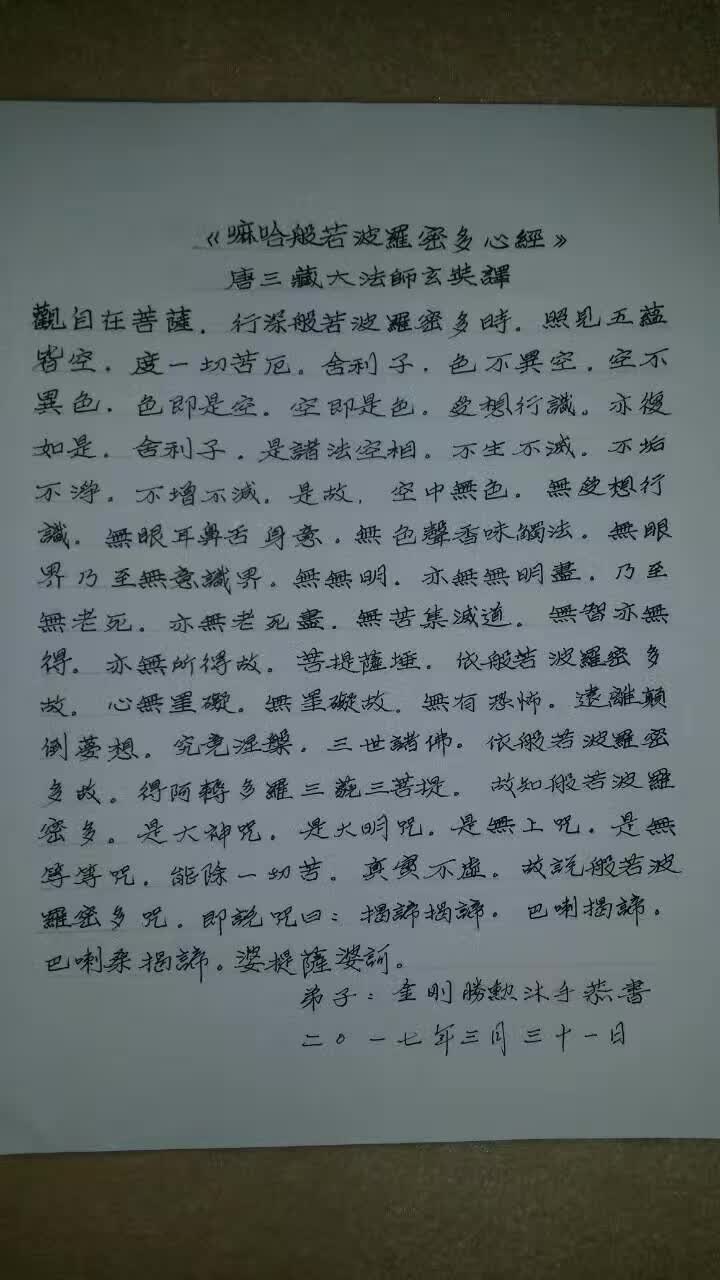 《嘛哈般若波羅密多心經》
唐三藏大法師玄奘譯
觀自在菩薩．行深般若波羅密多時．照見五蘊
皆空．度一切苦厄．舍利子．色不異空．空不
異色．色即是空．空即是色．受想行識．亦復
如是．舍利子．是諸法空相．不生不滅．不垢
不淨．不增不減．是故．空中無色．無受想行
識．無眼耳鼻舌身意．無色聲香味觸法．無眼
界乃至無意識界．無無明．亦無無明盡．乃至
無老死．亦無老死盡．無苦集滅道．無智亦無
得．亦無所得故．菩提薩埵．依般若波羅密多
故．心無罣礙．無罣礙故．無有恐怖．遠離顛
倒夢想．究竟涅槃．三世諸佛．依般若波羅密
多故．得阿耨多羅三藐三菩提．故知般若波羅
密多．是大神咒．是大明咒．是無上咒．是無
等等咒．能除一切苦．真實不虛．故說般若波
羅密多咒．即說咒曰：揭諦揭諦．巴喇揭諦．
巴喇桑揭諦．婆提薩婆訶．
弟子：金剛勝勲沐手恭書
二〇一七年三月三十一日